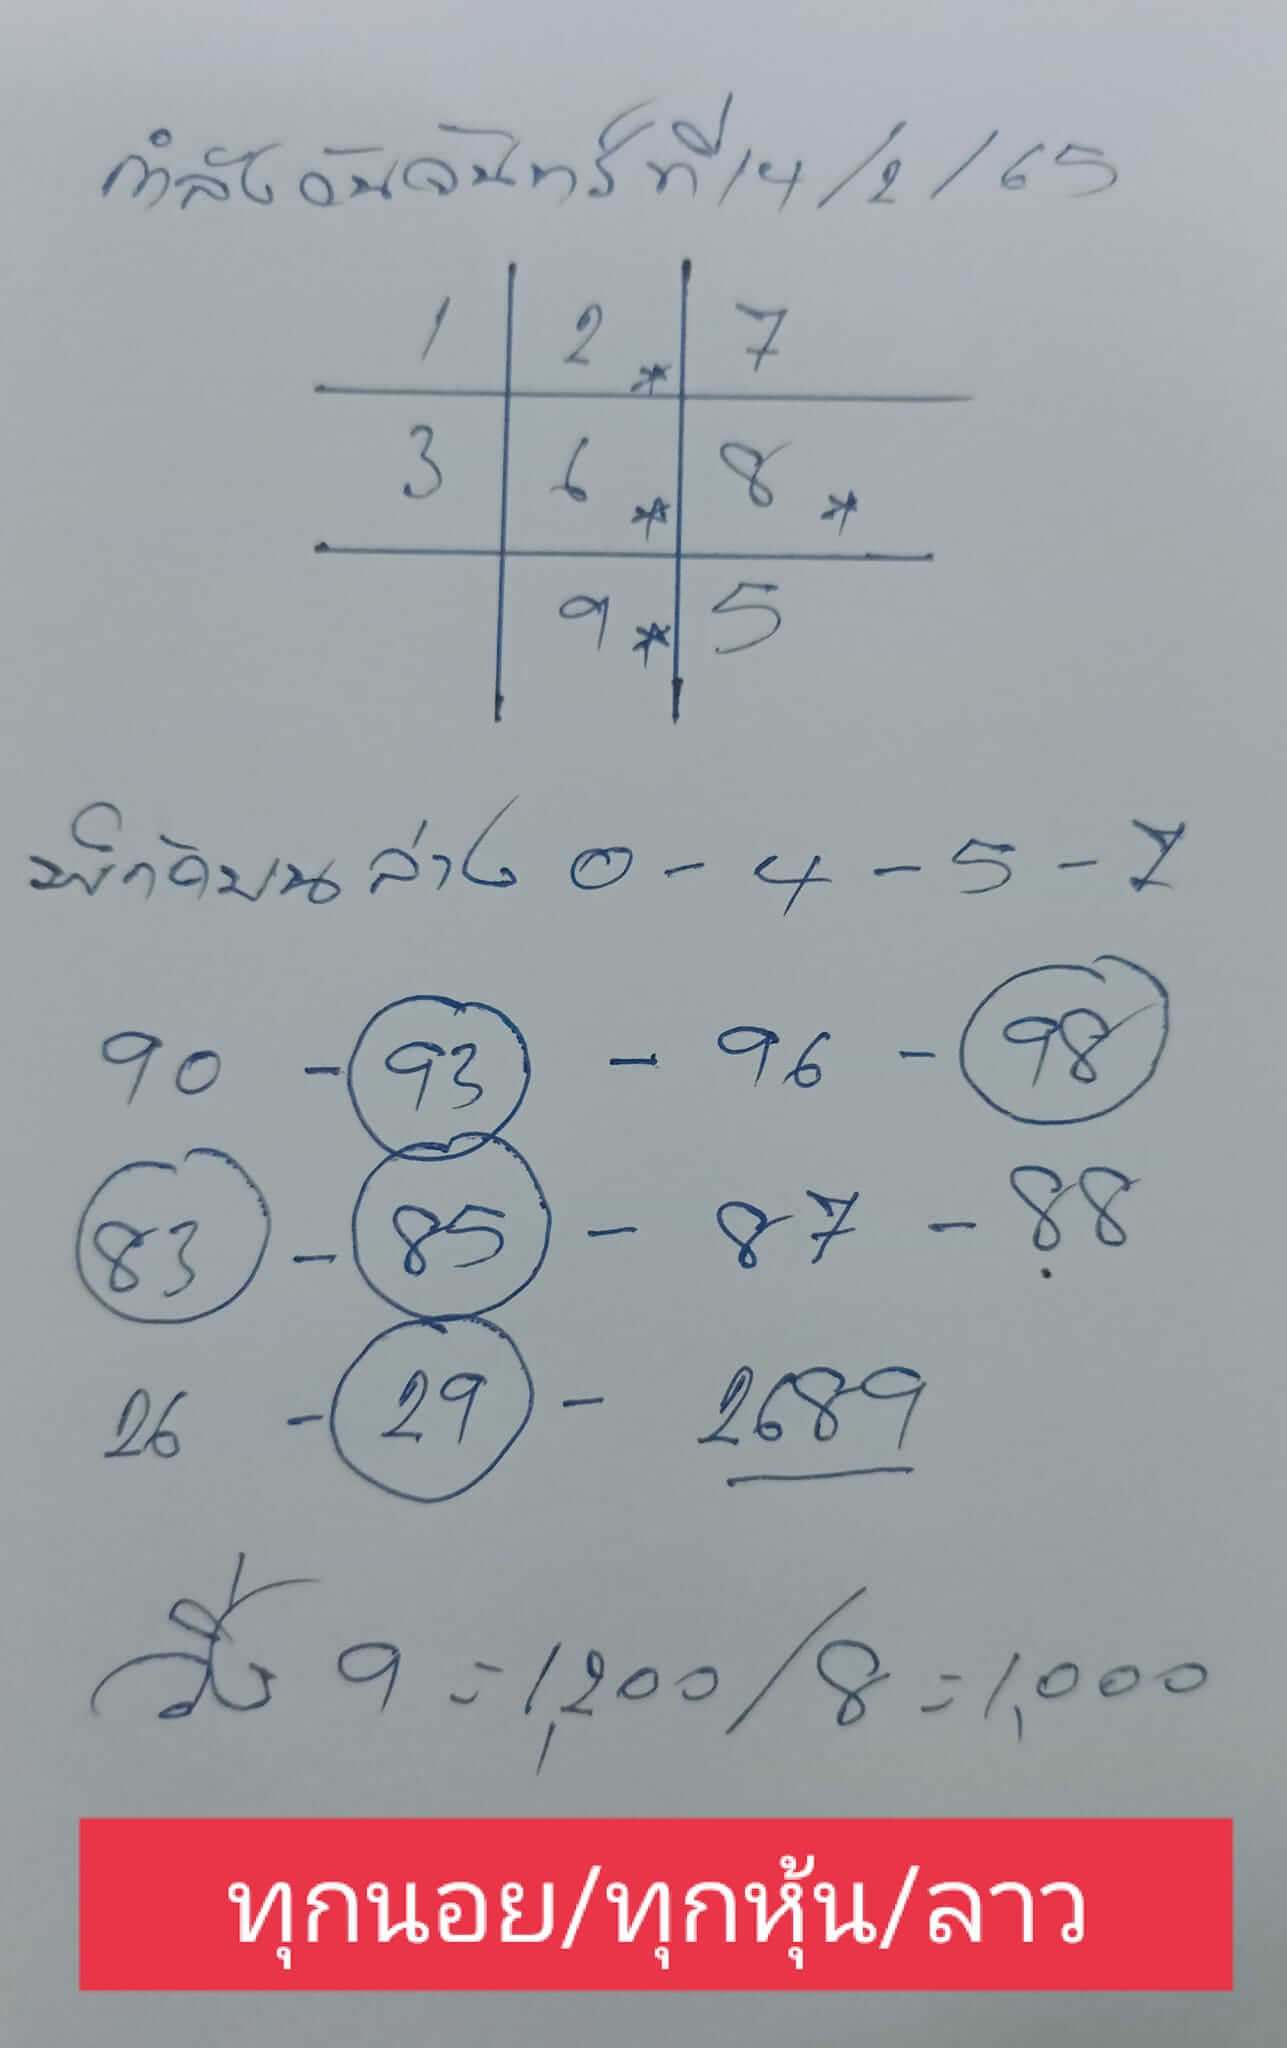 กำลังวันจันทร์ที่ 14/2/65
1 2* 7
3 6* 8*
9* 5
พิกัดบนล่าง 0-4-5-7
90 - 93 - 96 - 98
83 - 85 - 87 - 88
26 - 29 - 2689
9=1,200/8=1,000
ทุกนอย/ทุกหุ้น/ลาว